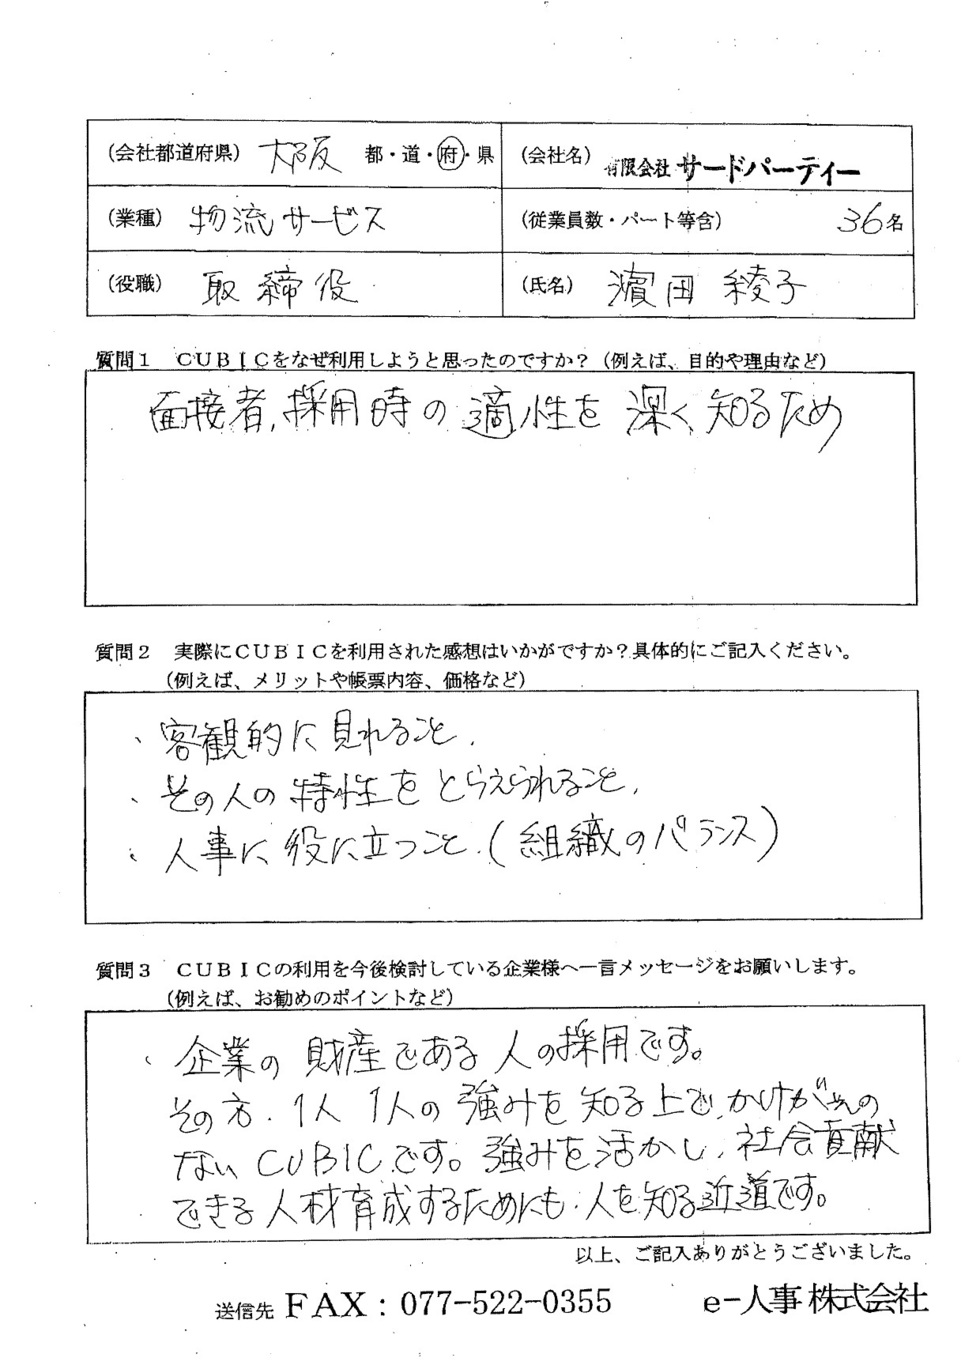 (会社都道府県) 大阪 都・道・府・県 (会社名) 有限会社 サードパーティー
(業種) 物流サービス (従業員数・パート等含) 36名
(役職) 取締役 (氏名) 濱田 綾子
質問1 CUBICをなぜ利用しようと思ったのですか?(例えば、目的や理由など)
面接者,採用時の適性を深く知るため
質問2 実際にCUBICを利用された感想はいかがですか?具体的にご記入ください。
(例えば、メリットや帳票内容、価格など)
、客観的に見れること.
、その人の特性をとらえられること.
、人事に役に立つこと.(組織のバランス)
質問3 CUBICの利用を今後検討している企業様へ一言メッセージをお願いします。
(例えば、お勧めのポイントなど)
、企業の財産である人の採用です。
その方、1人1人の強みを知る上で、かけがえの
ないCUBICです。強みを活かし、社会貢献
できる人材育成するためにも、人を知る近道です。
以上、ご記入ありがとうございました。
送信先 FAX:077-522-0355 e-人事株式会社